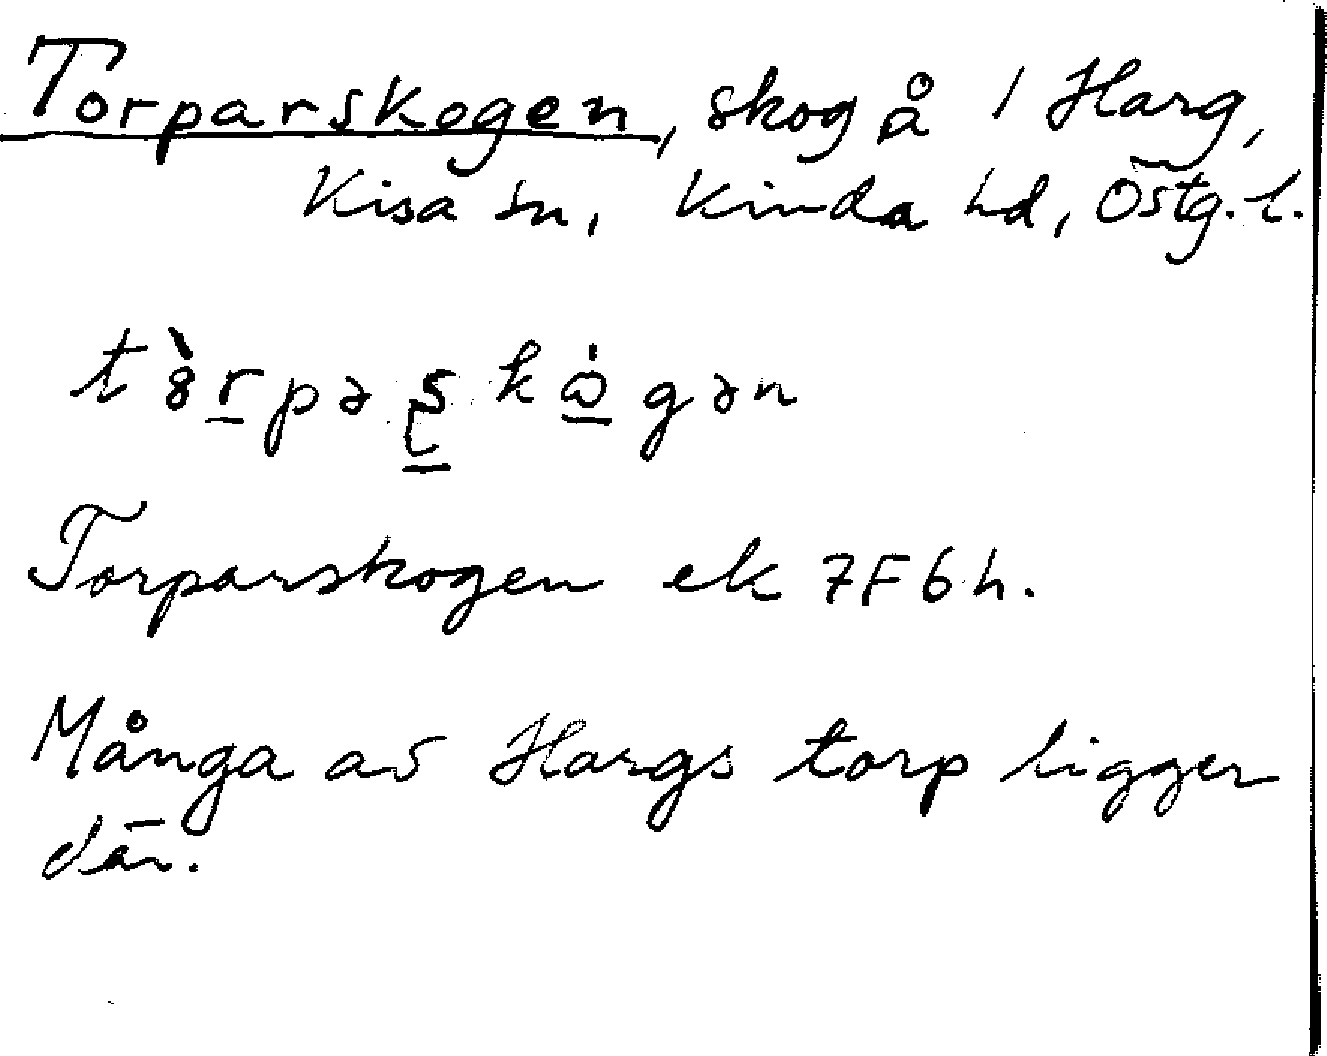 Torparskogen, skog å / Harg,
Kisa sn, Kinda hd, Östg. l.
Torparskogen ek 7F6h.
Många av Hargs torp ligger
där.